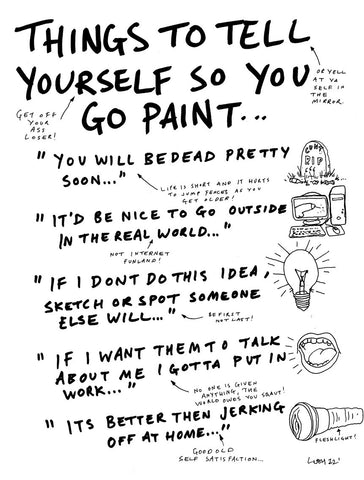 THINGS TO TELL
YOURSELF SO YOU
GO PAINT...
GET OFF
YOUR
ASS
LOSER!
OR YELL
AT YA
SELF IN
THE
MIRROR.
"YOU WILL BE DEAD PRETTY
SOON..."
LIFE IS SHORT AND IT HURTS
TO JUMP FENCES AS YOU
GET OLDER!
RIP
"IT'D BE NICE TO GO OUTSIDE
IN THE REAL WORLD..."
NOT INTERNET
FUNLAND!
"IF I DONT DO THIS IDEA,
SKETCH OR SPOT SOMEONE
ELSE WILL..."
BE FIRST
NOT LAST!
"IF I WANT THEM TO TALK
ABOUT ME I GOTTA PUT IN
WORK..."
NO ONE IS GIVEN
ANYTHING, THE
WORLD OWES YOU SQUAT!
"ITS BETTER THEN JERKING
OFF AT HOME..."
GOOD OLD
SELF SATISFACTION...
FLESHLIGHT!
22'